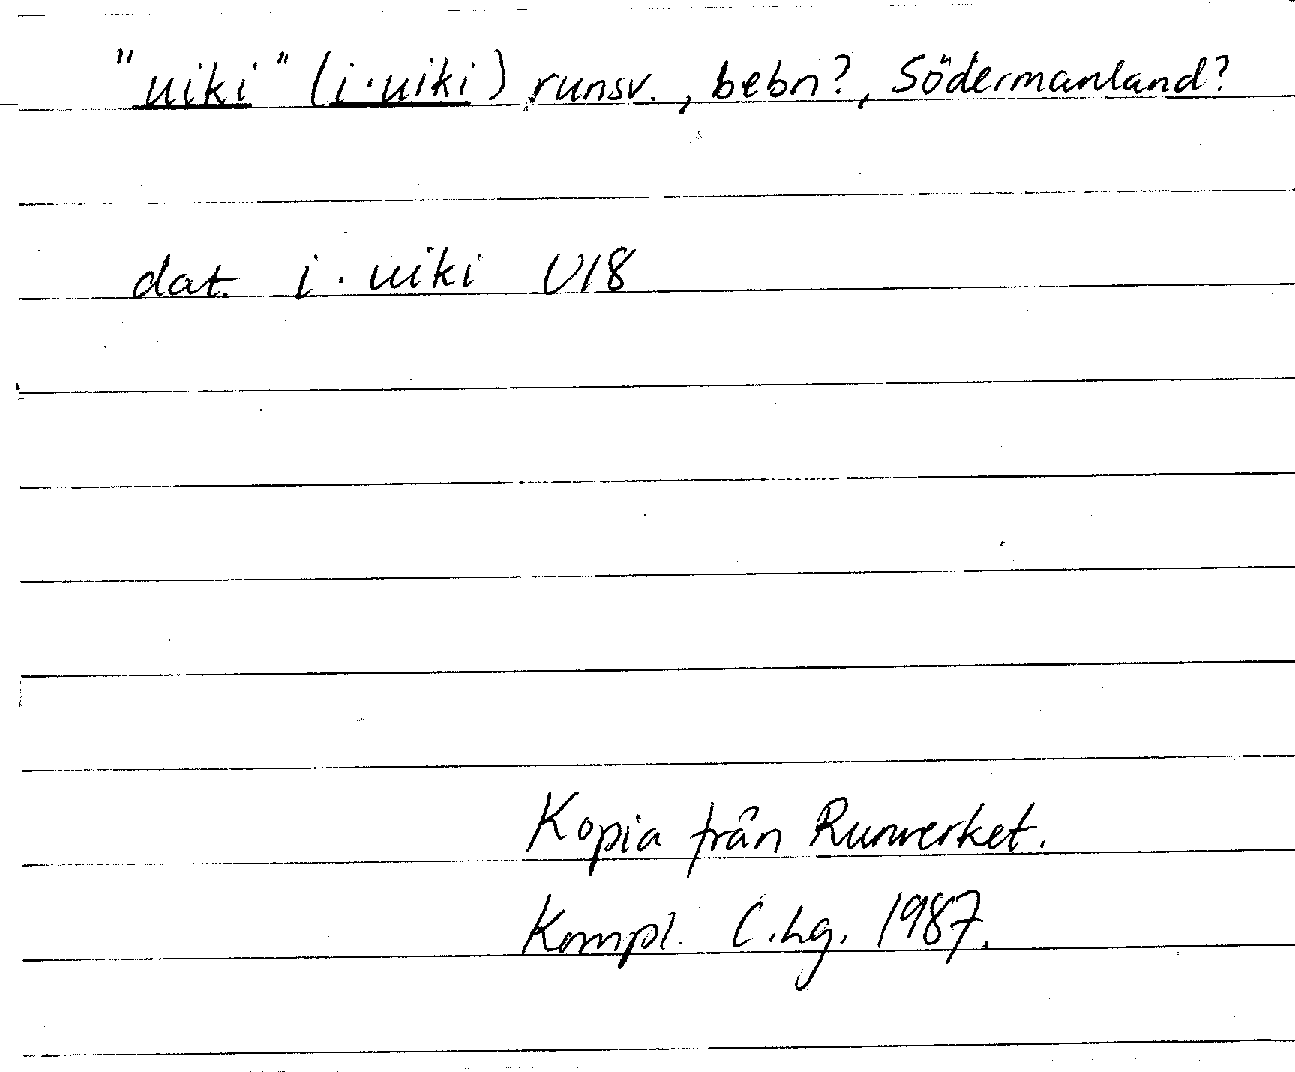 "uiki" (i·uiki) runsv., bebn?, Södermanland?
dat. i·uiki U18
Kopia från Runverket.
Kompl. C.Lg. 1987.